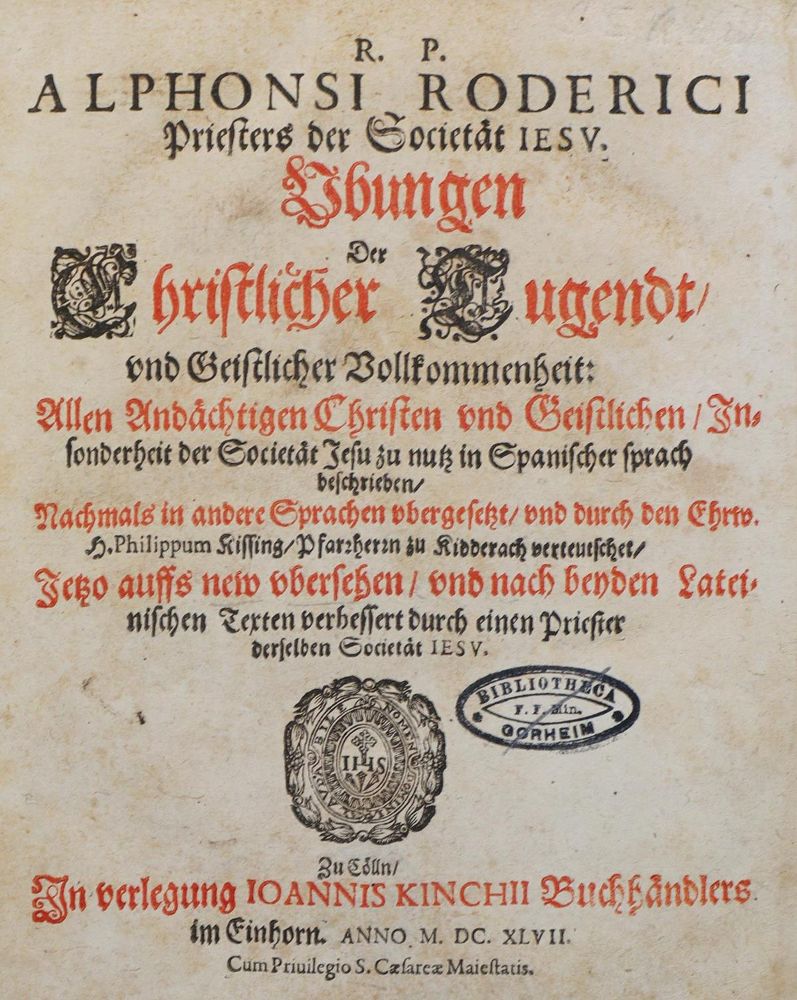 R. P.
ALPHONSI RODERICI
Priesters der Societät IESV.
Vbungen
Der
Christlicher Tugendt/
vnd Geistlicher Vollkommenheit:
Allen Andächtigen Christen vnd Geistlichen/ In-
sonderheit der Societät Jesu zu nutz in Spanischer sprach
beschrieben/
Nachmals in andere Sprachen vbergesetzt/ vnd durch den Ehrw.
H. Philippum Kissing/ Pfarrherrn zu Kidderach verteutschet/
Jetzo auffs new vbersehen/ vnd nach beyden Latei-
nischen Texten verbessert durch einen Priester
derselben Societät IESV.
BIBLIOTHECA
F. F. Min.
GORHEIM
NOMEN DOMINI
IHS
Zu Cölln/
In verlegung IOANNIS KINCHII Buchhändlers
im Einhorn. ANNO M. DC. XLVII.
Cum Priuilegio S. Cæsareæ Maiestatis.